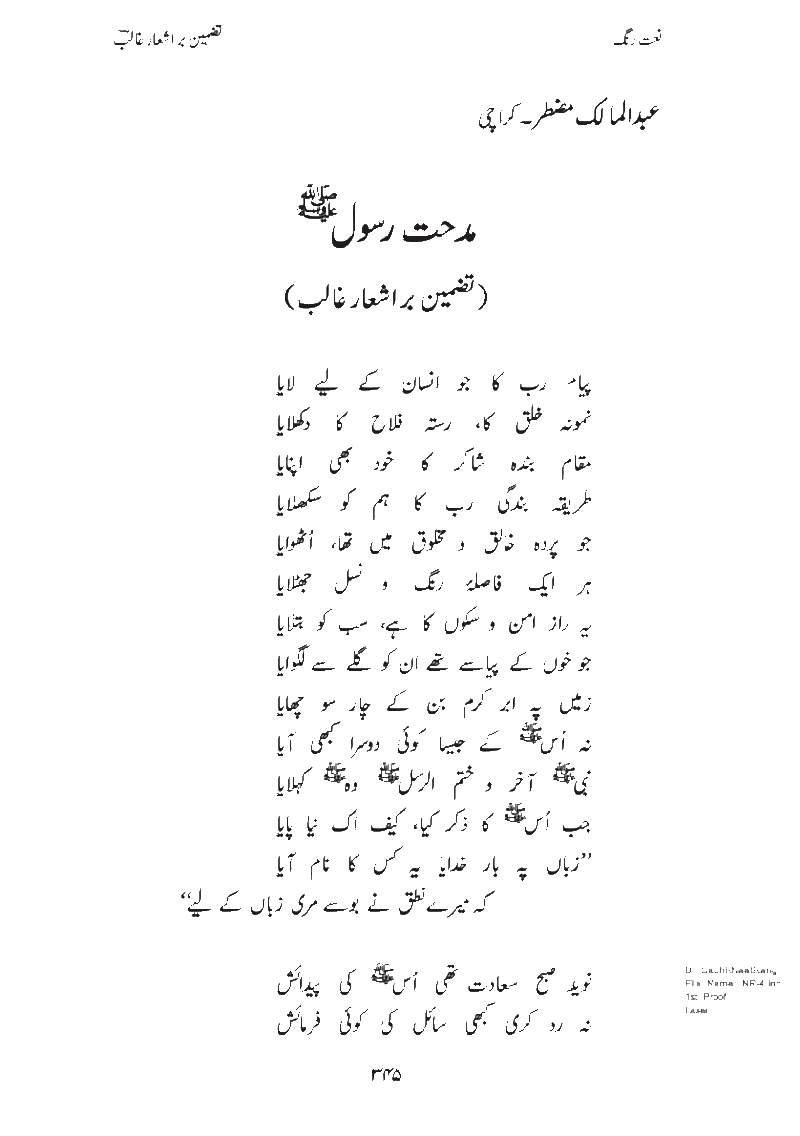 نعت رنگ
تضمین بر اشعار غالبؔ
عبدالمالک مضطر۔ کراچی
مدحت رسول ﷺ
(تضمین بر اشعار غالب)
پیام رب کا جو انسان کے لیے لایا
نمونہ خلق کا، رستہ فلاح کا دکھلایا
مقام بندہ شاکر کا خود بھی اپنایا
طریقہ بندگی رب کا ہم کو سکھلایا
جو پردہ خالق و مخلوق میں تھا، اُٹھوایا
ہر ایک فاصلۂ رنگ و نسل جھٹلایا
یہ راز امن و سکوں کا ہے، سب کو بتلایا
جو خوں کے پیاسے تھے ان کو گلے سے لگوایا
زمیں پہ ابر کرم بن کے چار سو چھایا
نہ اُس ﷺ کے جیسا کوئی دوسرا کبھی آیا
نبی ﷺ آخر و ختم الرسل ﷺ وہ ﷺ کہلایا
جب اُس ﷺ کا ذکر کیا، کیف اک نیا پایا
’’زباں پہ بار خدایا یہ کس کا نام آیا
کہ میرے نطق نے بوسے مری زباں کے لیے‘‘
نوید صبح سعادت تھی اُس ﷺ کی پیدائش
نہ رد کری کبھی سائل کی کوئی فرمائش
۳۴۵
File Name: NR-4.inp
1st Proof